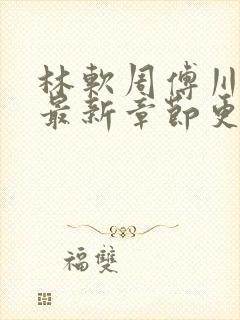 林軟周傅川
最新章節更
福雙